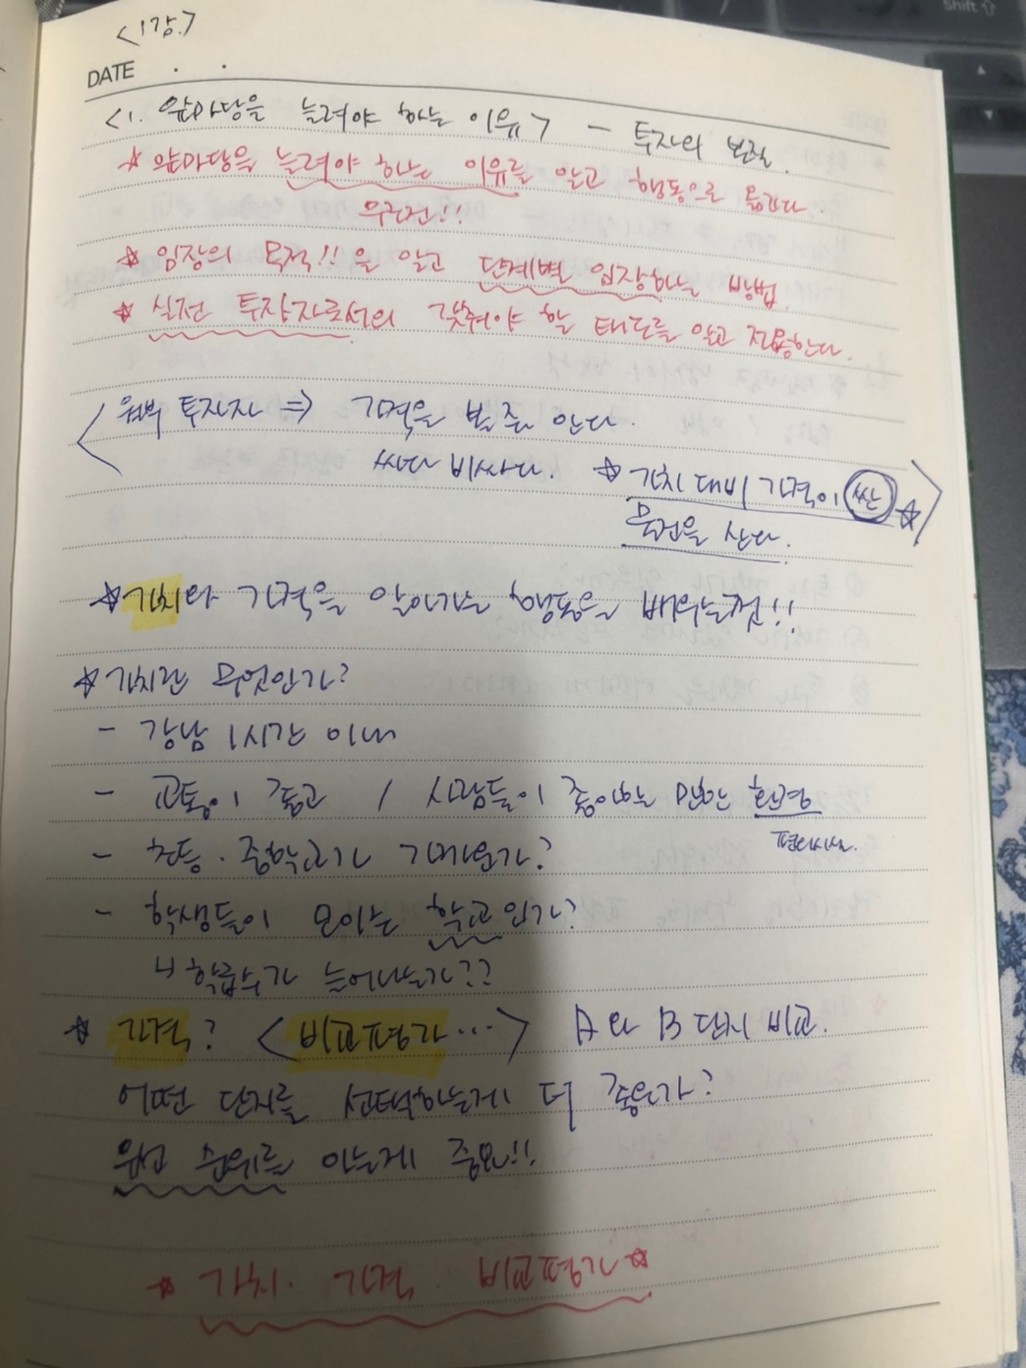 <1강.>
DATE . .
<1. 앞마당을 늘려야 하는 이유> - 투자의 본질.
☆ 앞마당을 늘려야 하는 이유를 알고 행동으로 옮긴다.
무조건!!
☆ 임장의 목적!! 을 알고 단계별 임장하는 방법
☆ 실전 투자자로서의 갖춰야 할 태도를 알고 적용한다.
투자자 ⇒ 가격을 볼 줄 안다.
싸다 비싸다. ☆ 가치 대비 가격이 싼 ☆
물건을 산다.
☆ 가치와 가격을 알아가는 행동을 배우는것!!
☆ 가치란 무엇인가?
- 강남 1시간 이내
- 교통이 좋고 / 사람들이 좋아하는 만한 환경
편의시설.
- 초등·중학교가 가까운가?
- 학생들이 모이는 학교인가?
ㄴ 학급수가 늘어나는가??
☆ 가격? <비교평가...> A와 B 단지 비교.
어떤 단지를 선택하는게 더 좋은가?
우선 순위를 아는게 중요!!
☆ 가치. 가격. 비교평가 ☆